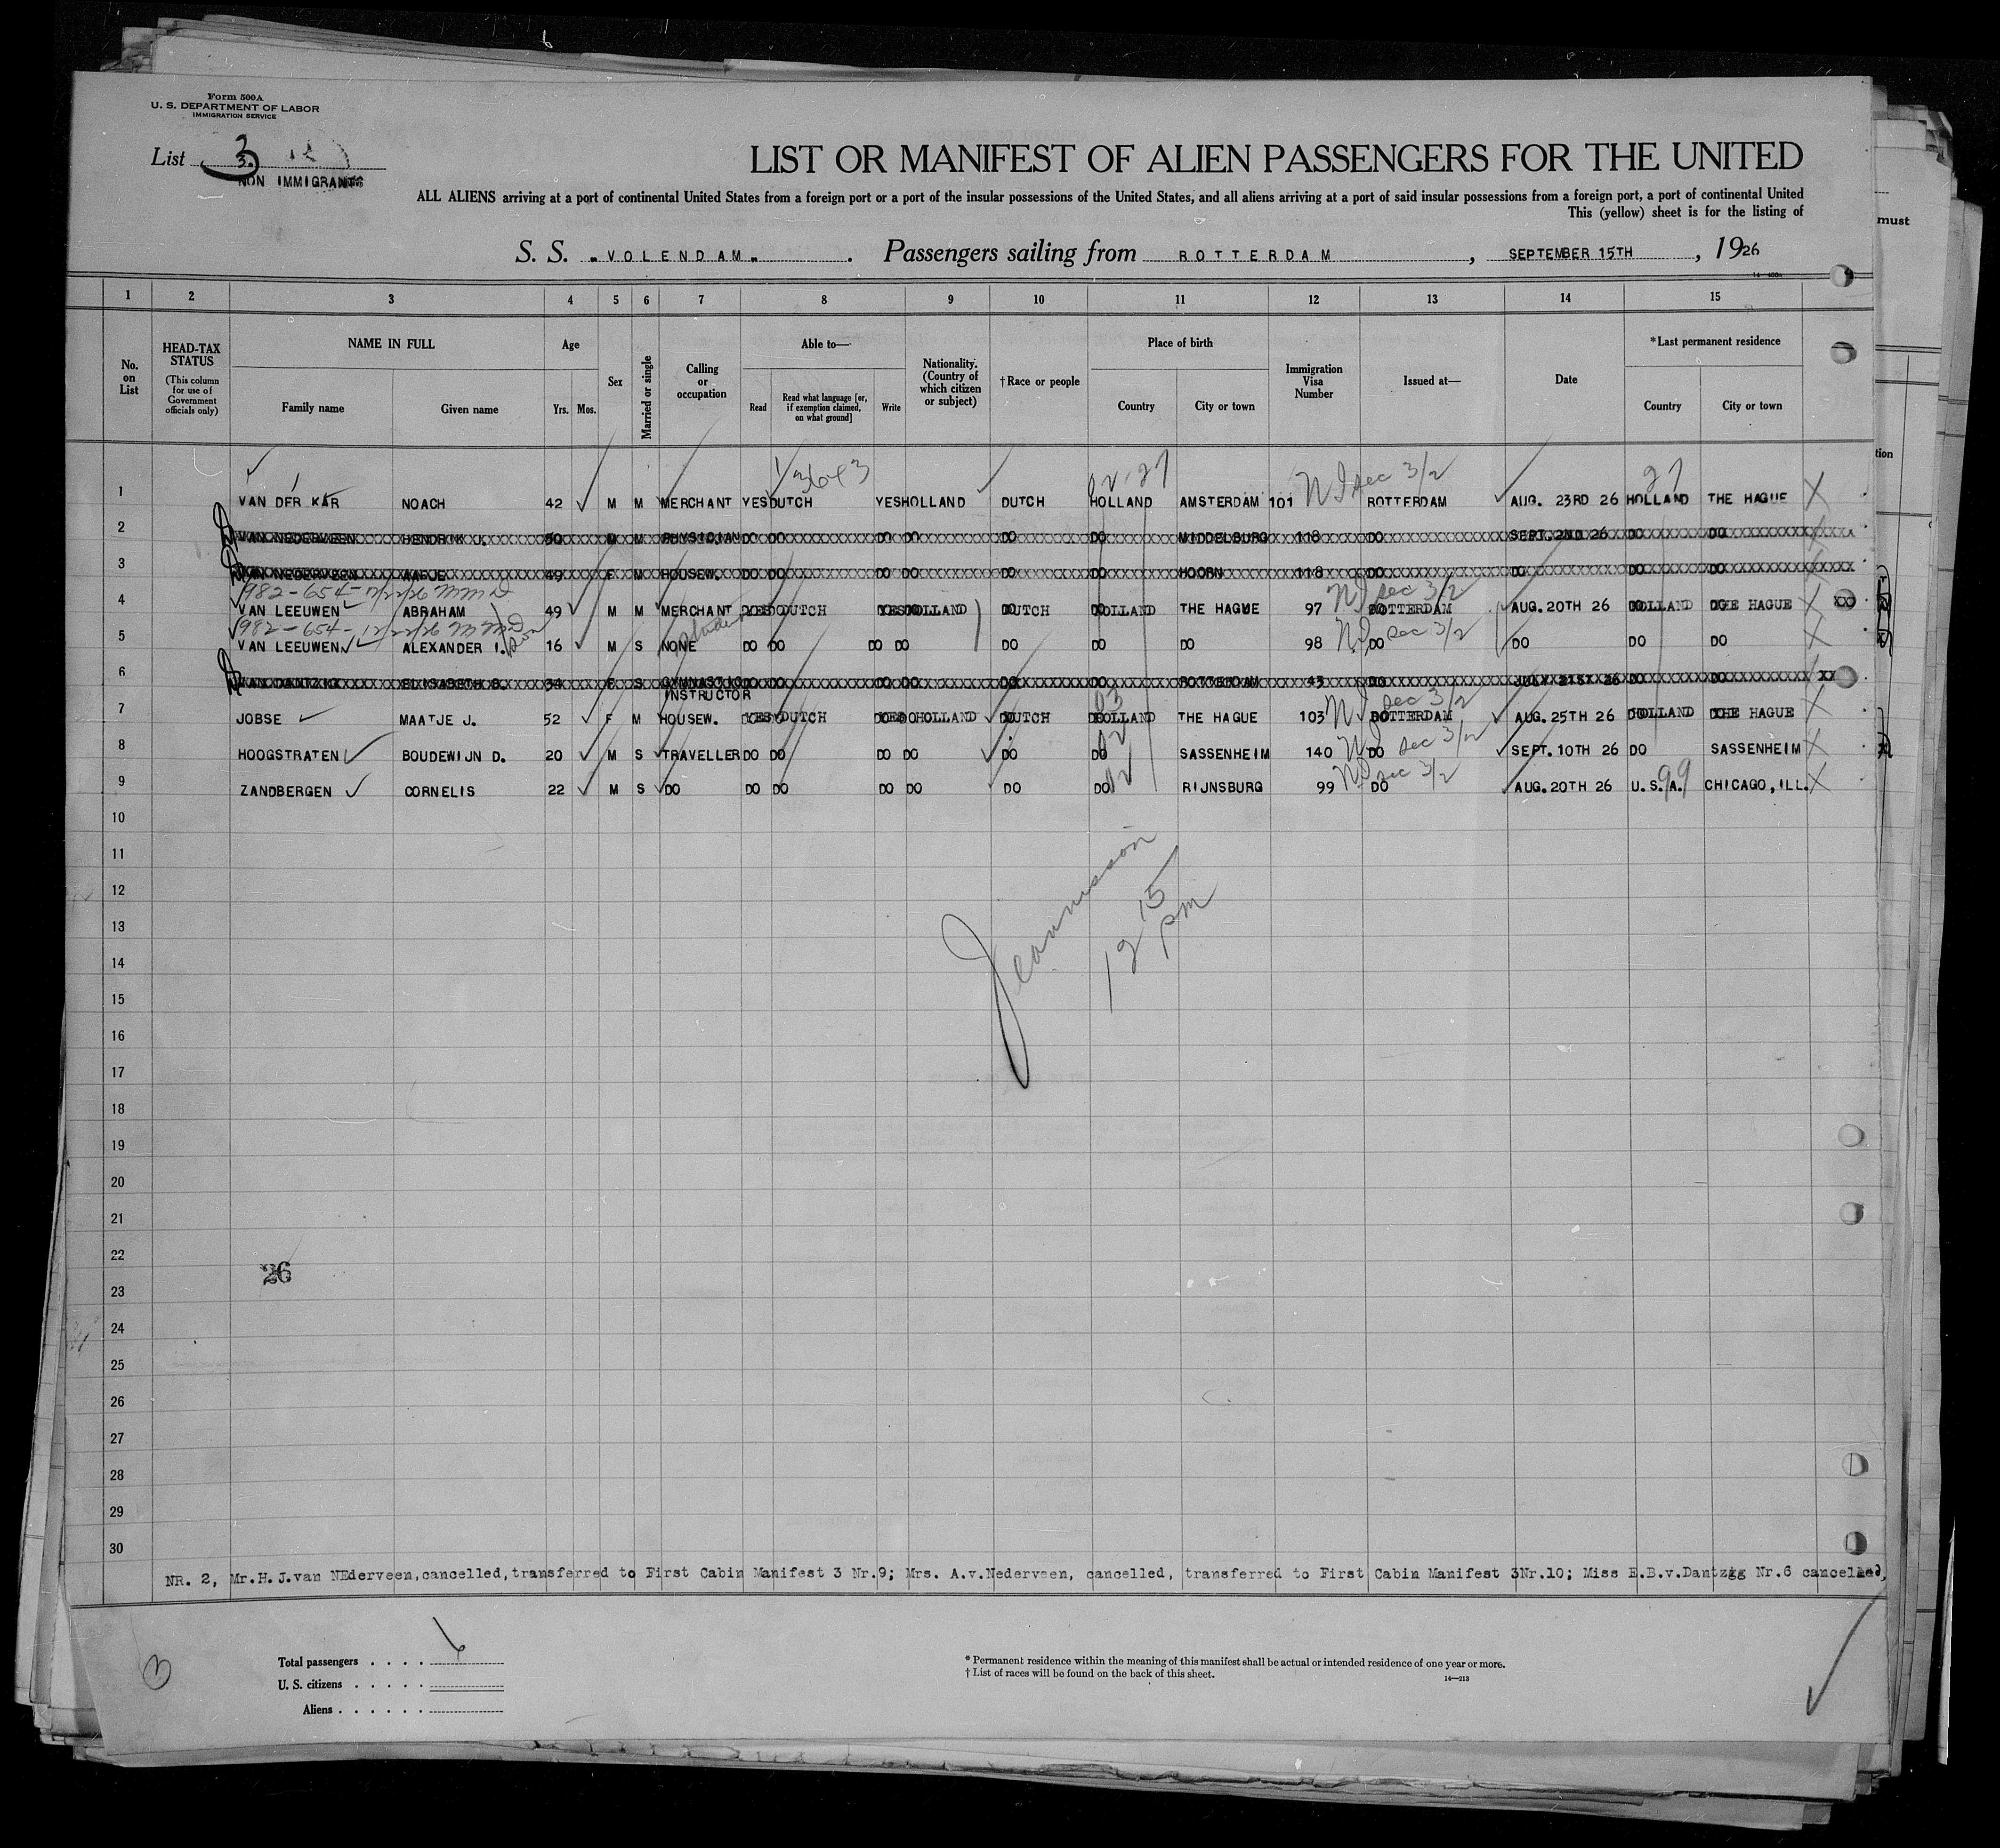 Form 500A
U. S. DEPARTMENT OF LABOR
IMMIGRATION SERVICE
List 3
NON IMMIGRANTS
LIST OR MANIFEST OF ALIEN PASSENGERS FOR THE UNITED
ALL ALIENS arriving at a port of continental United States from a foreign port or a port of the insular possessions of the United States, and all aliens arriving at a port of said insular possessions from a foreign port, a port of continental United
This (yellow) sheet is for the listing of
must
S. S. "VOLENDAM". Passengers sailing from ROTTERDAM, SEPTEMBER 15TH, 1926
1 2 3 4 5 6 7 8 9 10 11 12 13 14 15
No. on List
HEAD-TAX STATUS
(This column for use of Government officials only)
NAME IN FULL
Family name Given name
Age
Yrs. Mos.
Sex
Married or single
Calling or occupation
Able to—
Read
Read what language [or, if exemption claimed, on what ground]
Write
Nationality. (Country of which citizen or subject)
†Race or people
Place of birth
Country City or town
Immigration Visa Number
Issued at—
Date
*Last permanent residence
Country City or town
tion
13643 02-27 N I Sec 3/2 27
1 VAN DER KAR NOACH 42 M M MERCHANT YES DUTCH YES HOLLAND DUTCH HOLLAND AMSTERDAM 101 ROTTERDAM AUG. 23RD 26 HOLLAND THE HAGUE
2 VAN NEDERVEEN HENDRIK J. 50 M M PHYSICIAN DO DO DO DO DO DO MIDDELBURG 118 DO SEPT. 2ND 26 DO DO
3 VAN NEDERVEEN AAFJE 49 F M HOUSEW. DO DO DO DO DO DO HOORN 118 DO DO DO DO
982-654-12/2/26 N I Sec 3/2
4 VAN LEEUWEN ABRAHAM 49 M M MERCHANT YES DUTCH YES HOLLAND DUTCH HOLLAND THE HAGUE 97 ROTTERDAM AUG. 20TH 26 HOLLAND THE HAGUE XX
982-654-12/2/26 son student N I Sec 3/2
5 VAN LEEUWEN ALEXANDER I. 16 M S NONE DO DO DO DO DO DO DO 98 DO DO DO DO
6 VAN DANTZIG ELISABETH B. 34 F S GYMNASTIC INSTRUCTOR DO DO DO DO DO DO ROTTERDAM 43 DO JULY 21ST 26 DO DO
03 N I Sec 3/2
7 JOBSE MAATJE J. 52 F M HOUSEW. YES DUTCH YES HOLLAND DUTCH HOLLAND THE HAGUE 103 ROTTERDAM AUG. 25TH 26 HOLLAND THE HAGUE
8 HOOGSTRATEN BOUDEWIJN D. 20 M S TRAVELLER DO DO DO DO DO DO SASSENHEIM 140 N I DO Sec 3/2 SEPT. 10TH 26 DO SASSENHEIM
9 ZANDBERGEN CORNELIS 22 M S DO DO DO DO DO DO DO RIJNSBURG 99 N I DO Sec 3/2 AUG. 20TH 26 U.S.A. 99 CHICAGO, ILL.
10
11
12
13
14
15
16
17
18
19
20
21
22
23
24
25
26
27
28
29
30
12 15 pm
26
NR. 2, Mr.H.J.van NEderveen,cancelled,transferred to First Cabin Manifest 3 Nr.9; Mrs. A.v.Nederveen, cancelled, transferred to First Cabin Manifest 3Nr.10; Miss E.B.v.Dantzgg Nr.6 cancelled,
3
Total passengers . . . . 6
U. S. citizens . . . . .
Aliens . . . . . .
* Permanent residence within the meaning of this manifest shall be actual or intended residence of one year or more.
† List of races will be found on the back of this sheet.
14—213